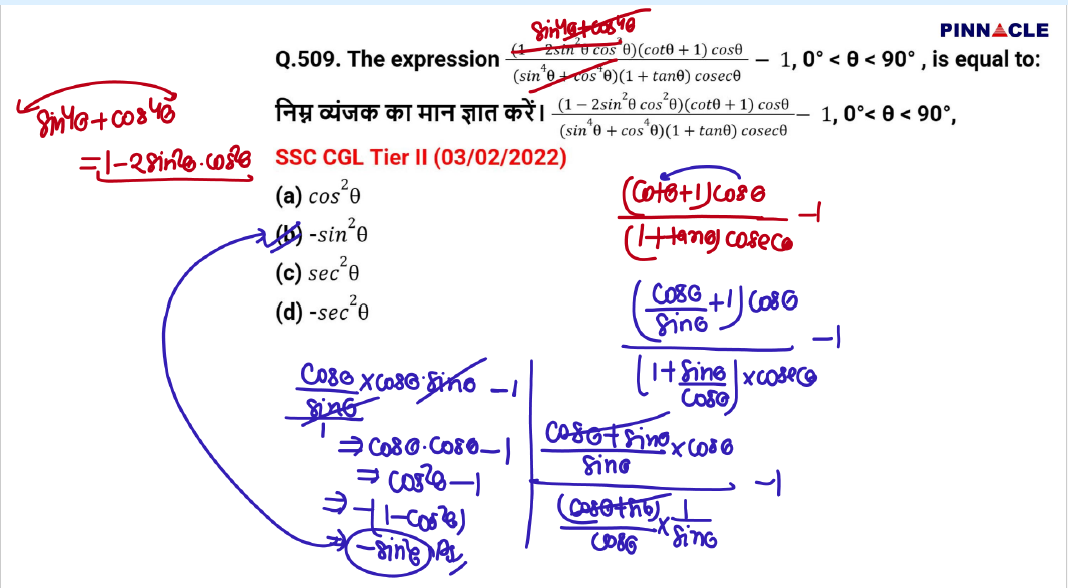 PINNACLE
sin⁴θ+cos⁴θ
Q.509. The expression (1 − 2sin²θ cos²θ)(cotθ + 1) cosθ / (sin⁴θ + cos⁴θ)(1 + tanθ) cosecθ − 1, 0° < θ < 90° , is equal to:
sin⁴θ+cos⁴θ
=1-2sin²θ.cos²θ
निम्न व्यंजक का मान ज्ञात करें। (1 − 2sin²θ cos²θ)(cotθ + 1) cosθ / (sin⁴θ + cos⁴θ)(1 + tanθ) cosecθ − 1, 0°< θ < 90°,
SSC CGL Tier II (03/02/2022)
(a) cos²θ
(b) -sin²θ
(c) sec²θ
(d) -sec²θ
(cotθ+1)cosθ / (1+tanθ)cosecθ -1
(cosθ/sinθ +1)cosθ / (1+ sinθ/cosθ)×cosecθ -1
cosθ+sinθ/sinθ ×cosθ / (cosθ+sinθ)/cosθ × 1/sinθ -1
cosθ/sinθ/1 ×cosθ.sinθ -1
⇒ cosθ.cosθ-1
⇒ cos²θ-1
⇒ -(1-cos²θ)
⇒ -sin²θ